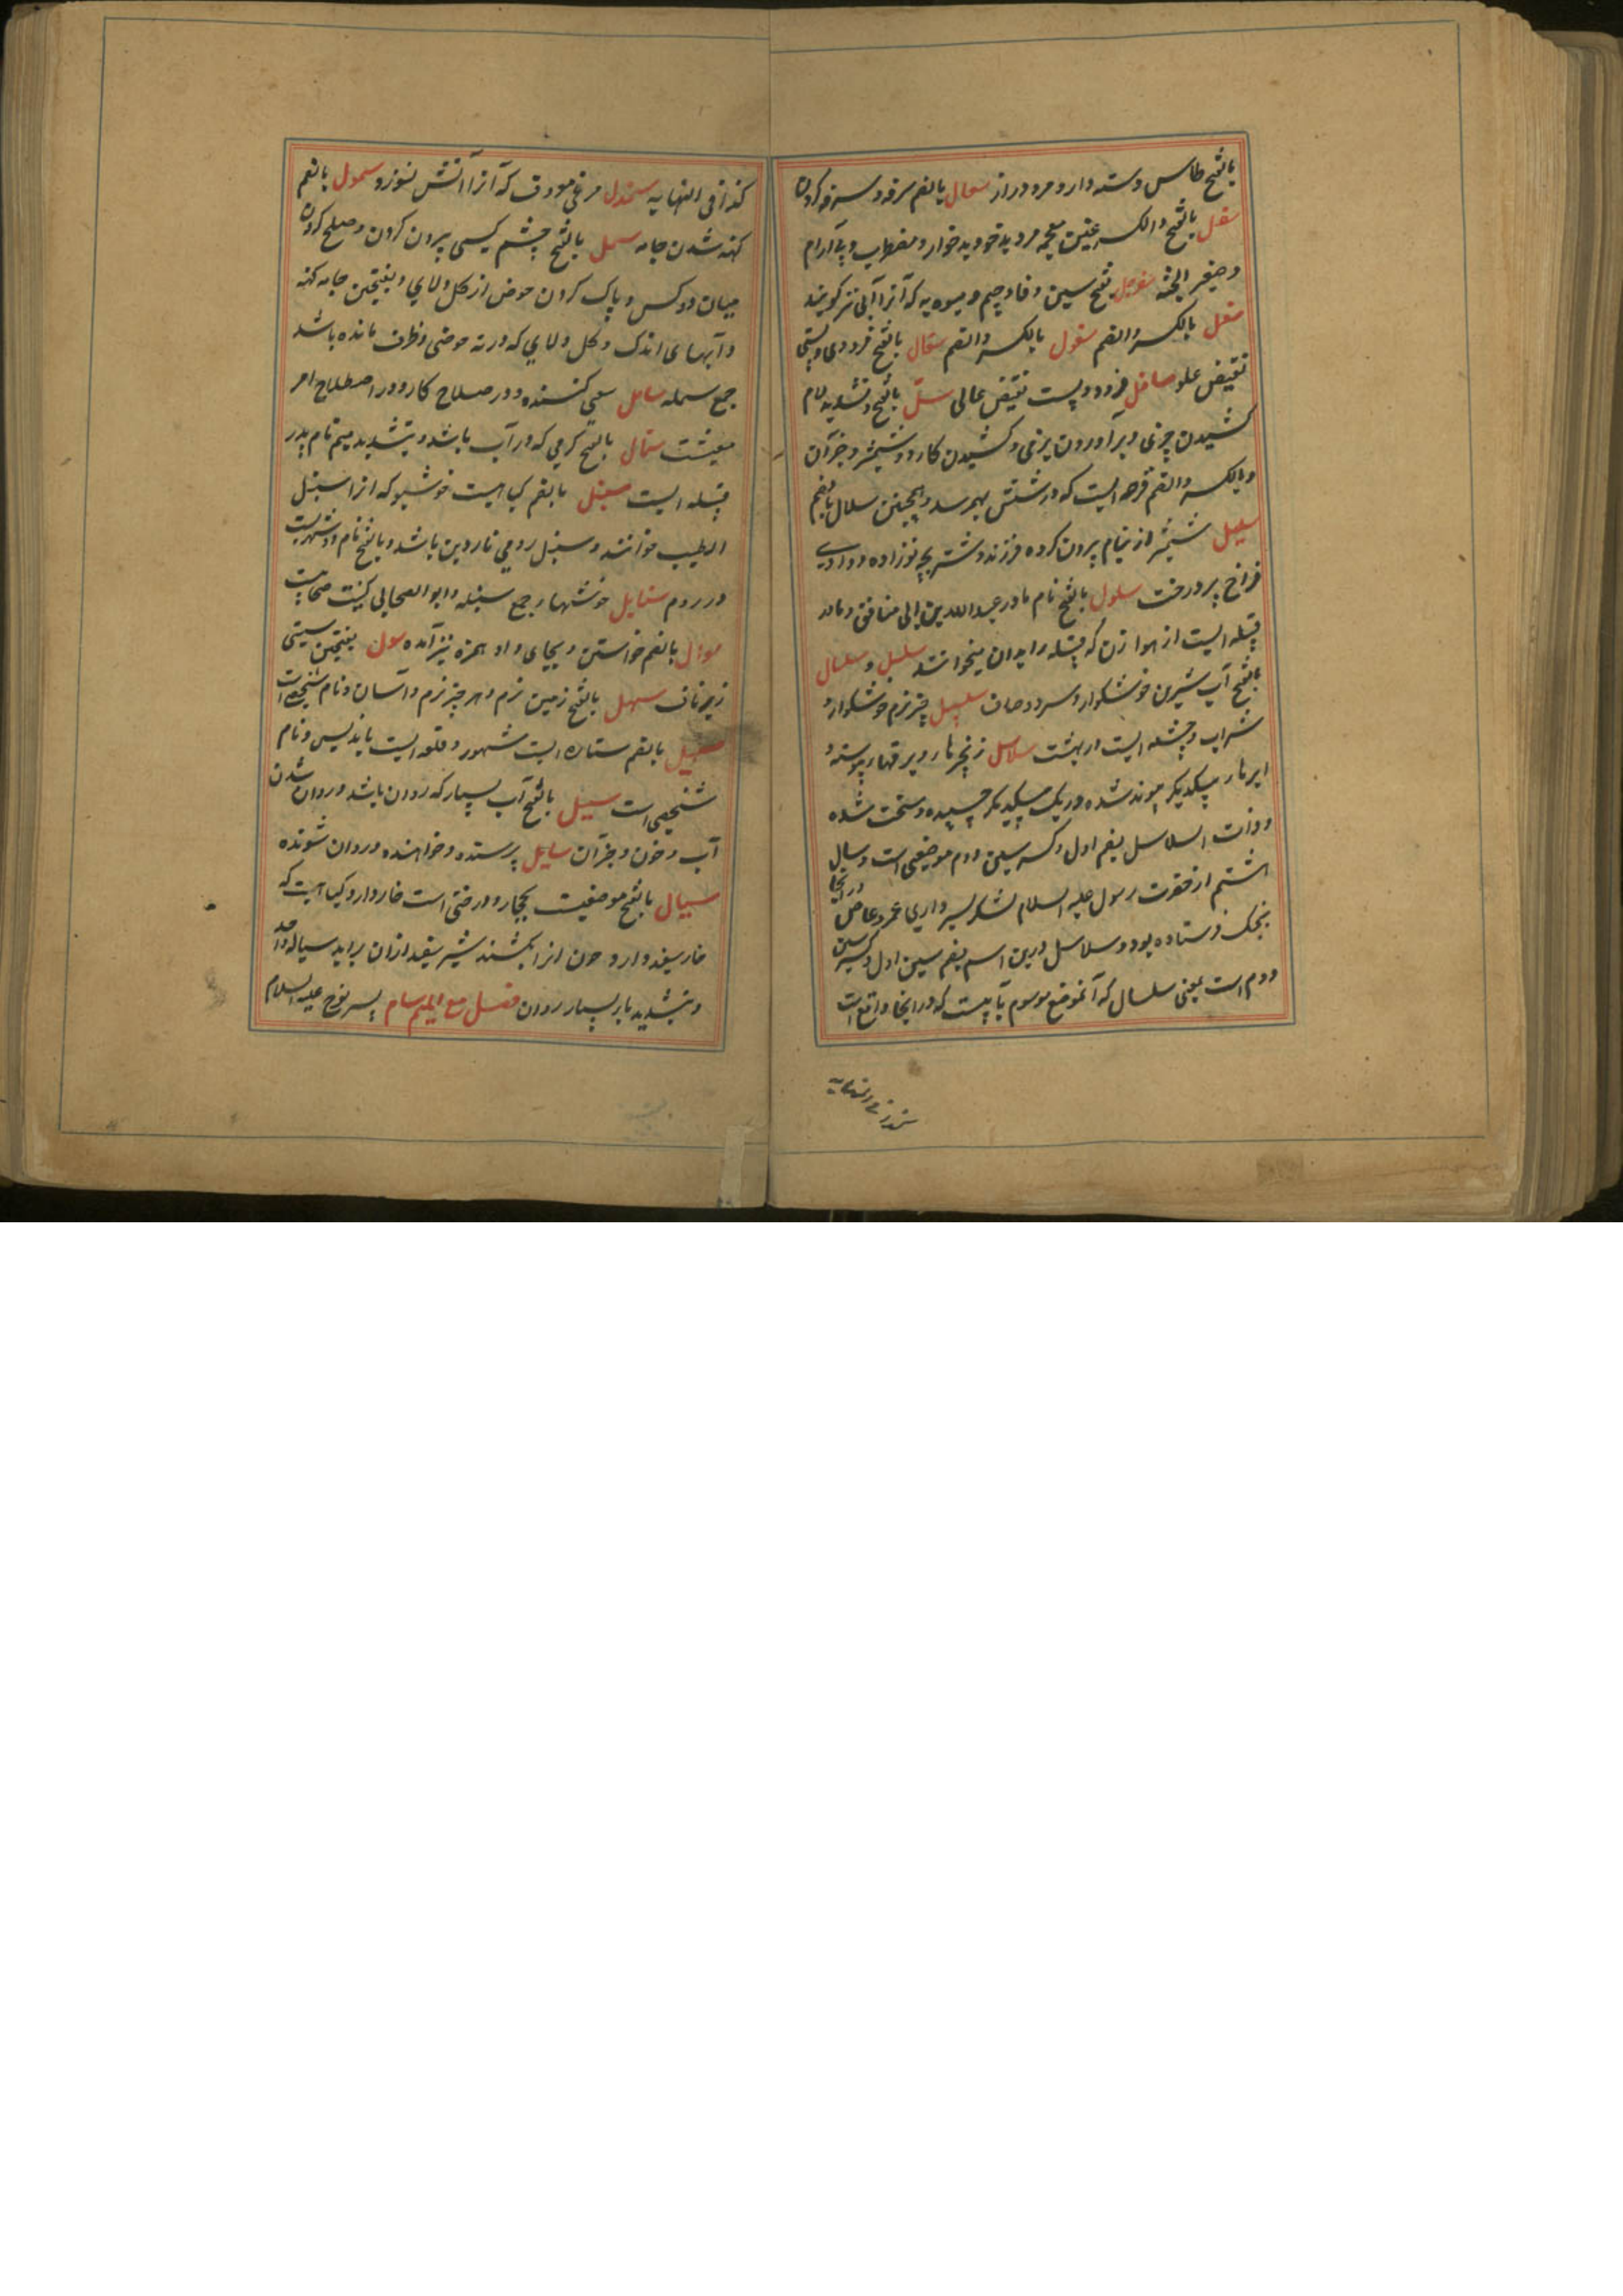 بالفتح طاس و سته دار و مرد دراز سعال بالضم سرفه و سرفه کردن
سغل بالفتح و الکسر غین معجمه مرد بد خو و بد خوار و مضطرب و بی آرام
و صغیر الجثه سفرجل بفتح سین و فا و جیم میوه یه که آنرا آبی نیز گویند
سفل بالکسر والضم سفول بالکسر والضم سفال بالفتح فرودی و پستی
نقیض علو سافل فرود و پست نقیض عالی سلّ بالفتح و تشدید لام
کشیدن چیزی و برآوردن چیزی و کشیدن کارد و شمشیر و جز آن
و بالکسر والضم قرحه ایست که در شش بهم رسد و همچنین سلال بالضم
سلیل شمشیر از نیام بیرون کرده و فرزند و شتر بچه نوزاده و وادی
فراخ پر درخت سلول بالفتح نام مادر عبدالله بن ابی منافق و مادر
قبیله ایست از هوازن که قبیله را بدان میخوانند سلسل و سلسال
بالفتح آب شیرین خوشگوار و سرد و صاف سلسبیل چیز نرم خوشگوار و
شراب و چشمه ایست در بهشت سلاسل زنجیرها و برقهای پیوسته و
ابرها بیکدیگر پیوند شده و ریک بیکدیگر چسپیده و سخت شده
و ذات السلاسل بضم اول و کسر سین دوم موضعی است و سال
هشتم از هجرت رسول علیه السلام لشکر بسرداری عمرو عاص در آنجا
بجنگ فرستاده بود و سلاسل درین اسم بضم سین اول و کسر سین
دوم است بمعنی سلسال که آنموضع موسوم بآبیست که در آنجا واقع است
کذا فی النهایه
کذا فی النهایه سمندل مرغی معروف که آنرا آتش نسوزد سمول بالضم
کهنه شدن جامه سمل بالفتح چشم کسی بیرون کردن و صلح کردن
میان دو کس و پاک کردن حوض از گل و لای و بفتحین جامه کهنه
و آبهای اندک و گل و لای که در ته حوض و ظرف مانده باشد
جمع سمله سامل سعی کننده و در صلاح کار و در اصطلاح امر
معیشت سمال بالفتح کرمی که در آب باشد و بتشدید میم نام پدر
قبیله ایست سنبل بالضم گیاهیست خوشبو که آنرا سنبل
الطیب خوانند و سنبل رومی ناردین باشد و بالفتح نام شهریست
در روم سنابل خوشها جمع سنبله و ابو السنابل کنیت صحابیست
سوال بالضم خواستن و بجای واو همزه نیز آمده سول بفتحین سستی
زیر ناف سهل بالفتح زمین نرم و هر چیز نرم و آسان و نام شخصی است
سهیل بالضم ستاره ایست مشهور و قلعه ایست باندلس و نام
شخصی است سیل بالفتح آب بسیار که روان باشد و روان شدن
آب و خون و جز آن سایل پرسنده و خواهنده و روان شونده
سیال بالفتح موضعیست بحجاز و درختی است خاردار و گیاهیست که
خار سفید دارد و چون آنرا بکشند شیر سفید از آن براید سیاله واحد
و بتشدید یا بسیار روان فصل مع المیم سام پسر نوح علیه السلام